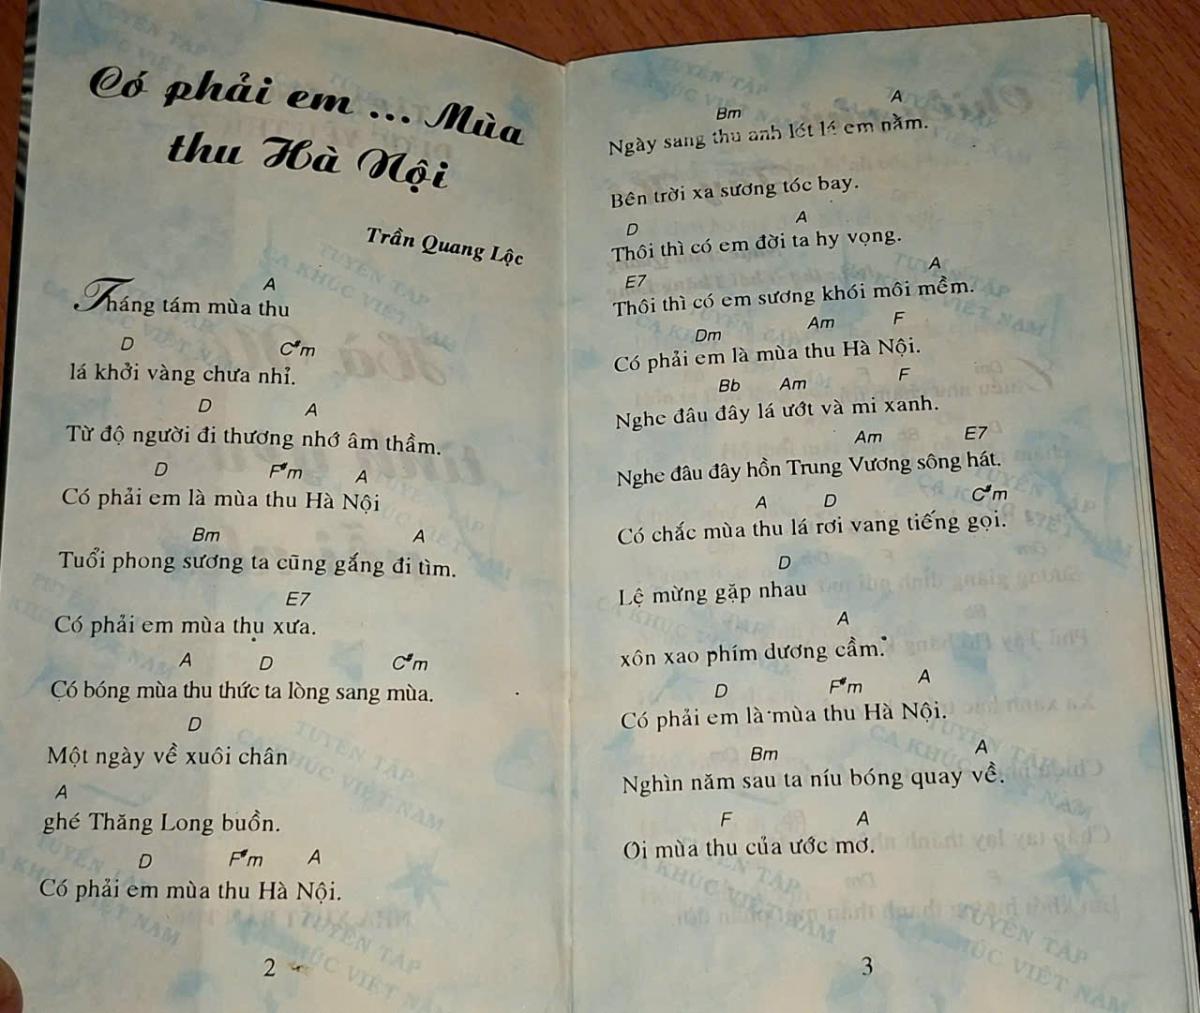 Có phải em ... Mùa
thu Hà Nội
Trần Quang Lộc
A
Tháng tám mùa thu
D C#m
lá khởi vàng chưa nhỉ.
D A
Từ độ người đi thương nhớ âm thầm.
D F#m A
Có phải em là mùa thu Hà Nội
Bm A
Tuổi phong sương ta cũng gắng đi tìm.
E7
Có phải em mùa thu xưa.
A D C#m
Có bóng mùa thu thức ta lòng sang mùa.
D
Một ngày về xuôi chân
A
ghé Thăng Long buồn.
D F#m A
Có phải em mùa thu Hà Nội.
2
Bm A
Ngày sang thu anh lót lá em nằm.
Bên trời xa sương tóc bay.
D A
Thôi thì có em đời ta hy vọng.
E7 A
Thôi thì có em sương khói môi mềm.
Dm Am F
Có phải em là mùa thu Hà Nội.
Bb Am F
Nghe đâu đây lá ướt và mi xanh.
Am E7
Nghe đâu đây hồn Trung Vương sông hát.
A D C#m
Có chắc mùa thu lá rơi vang tiếng gọi.
D
Lệ mừng gặp nhau
A
xôn xao phím dương cầm.
D F#m A
Có phải em là mùa thu Hà Nội.
Bm A
Nghìn năm sau ta níu bóng quay về.
F A
Ơi mùa thu của ước mơ.
3